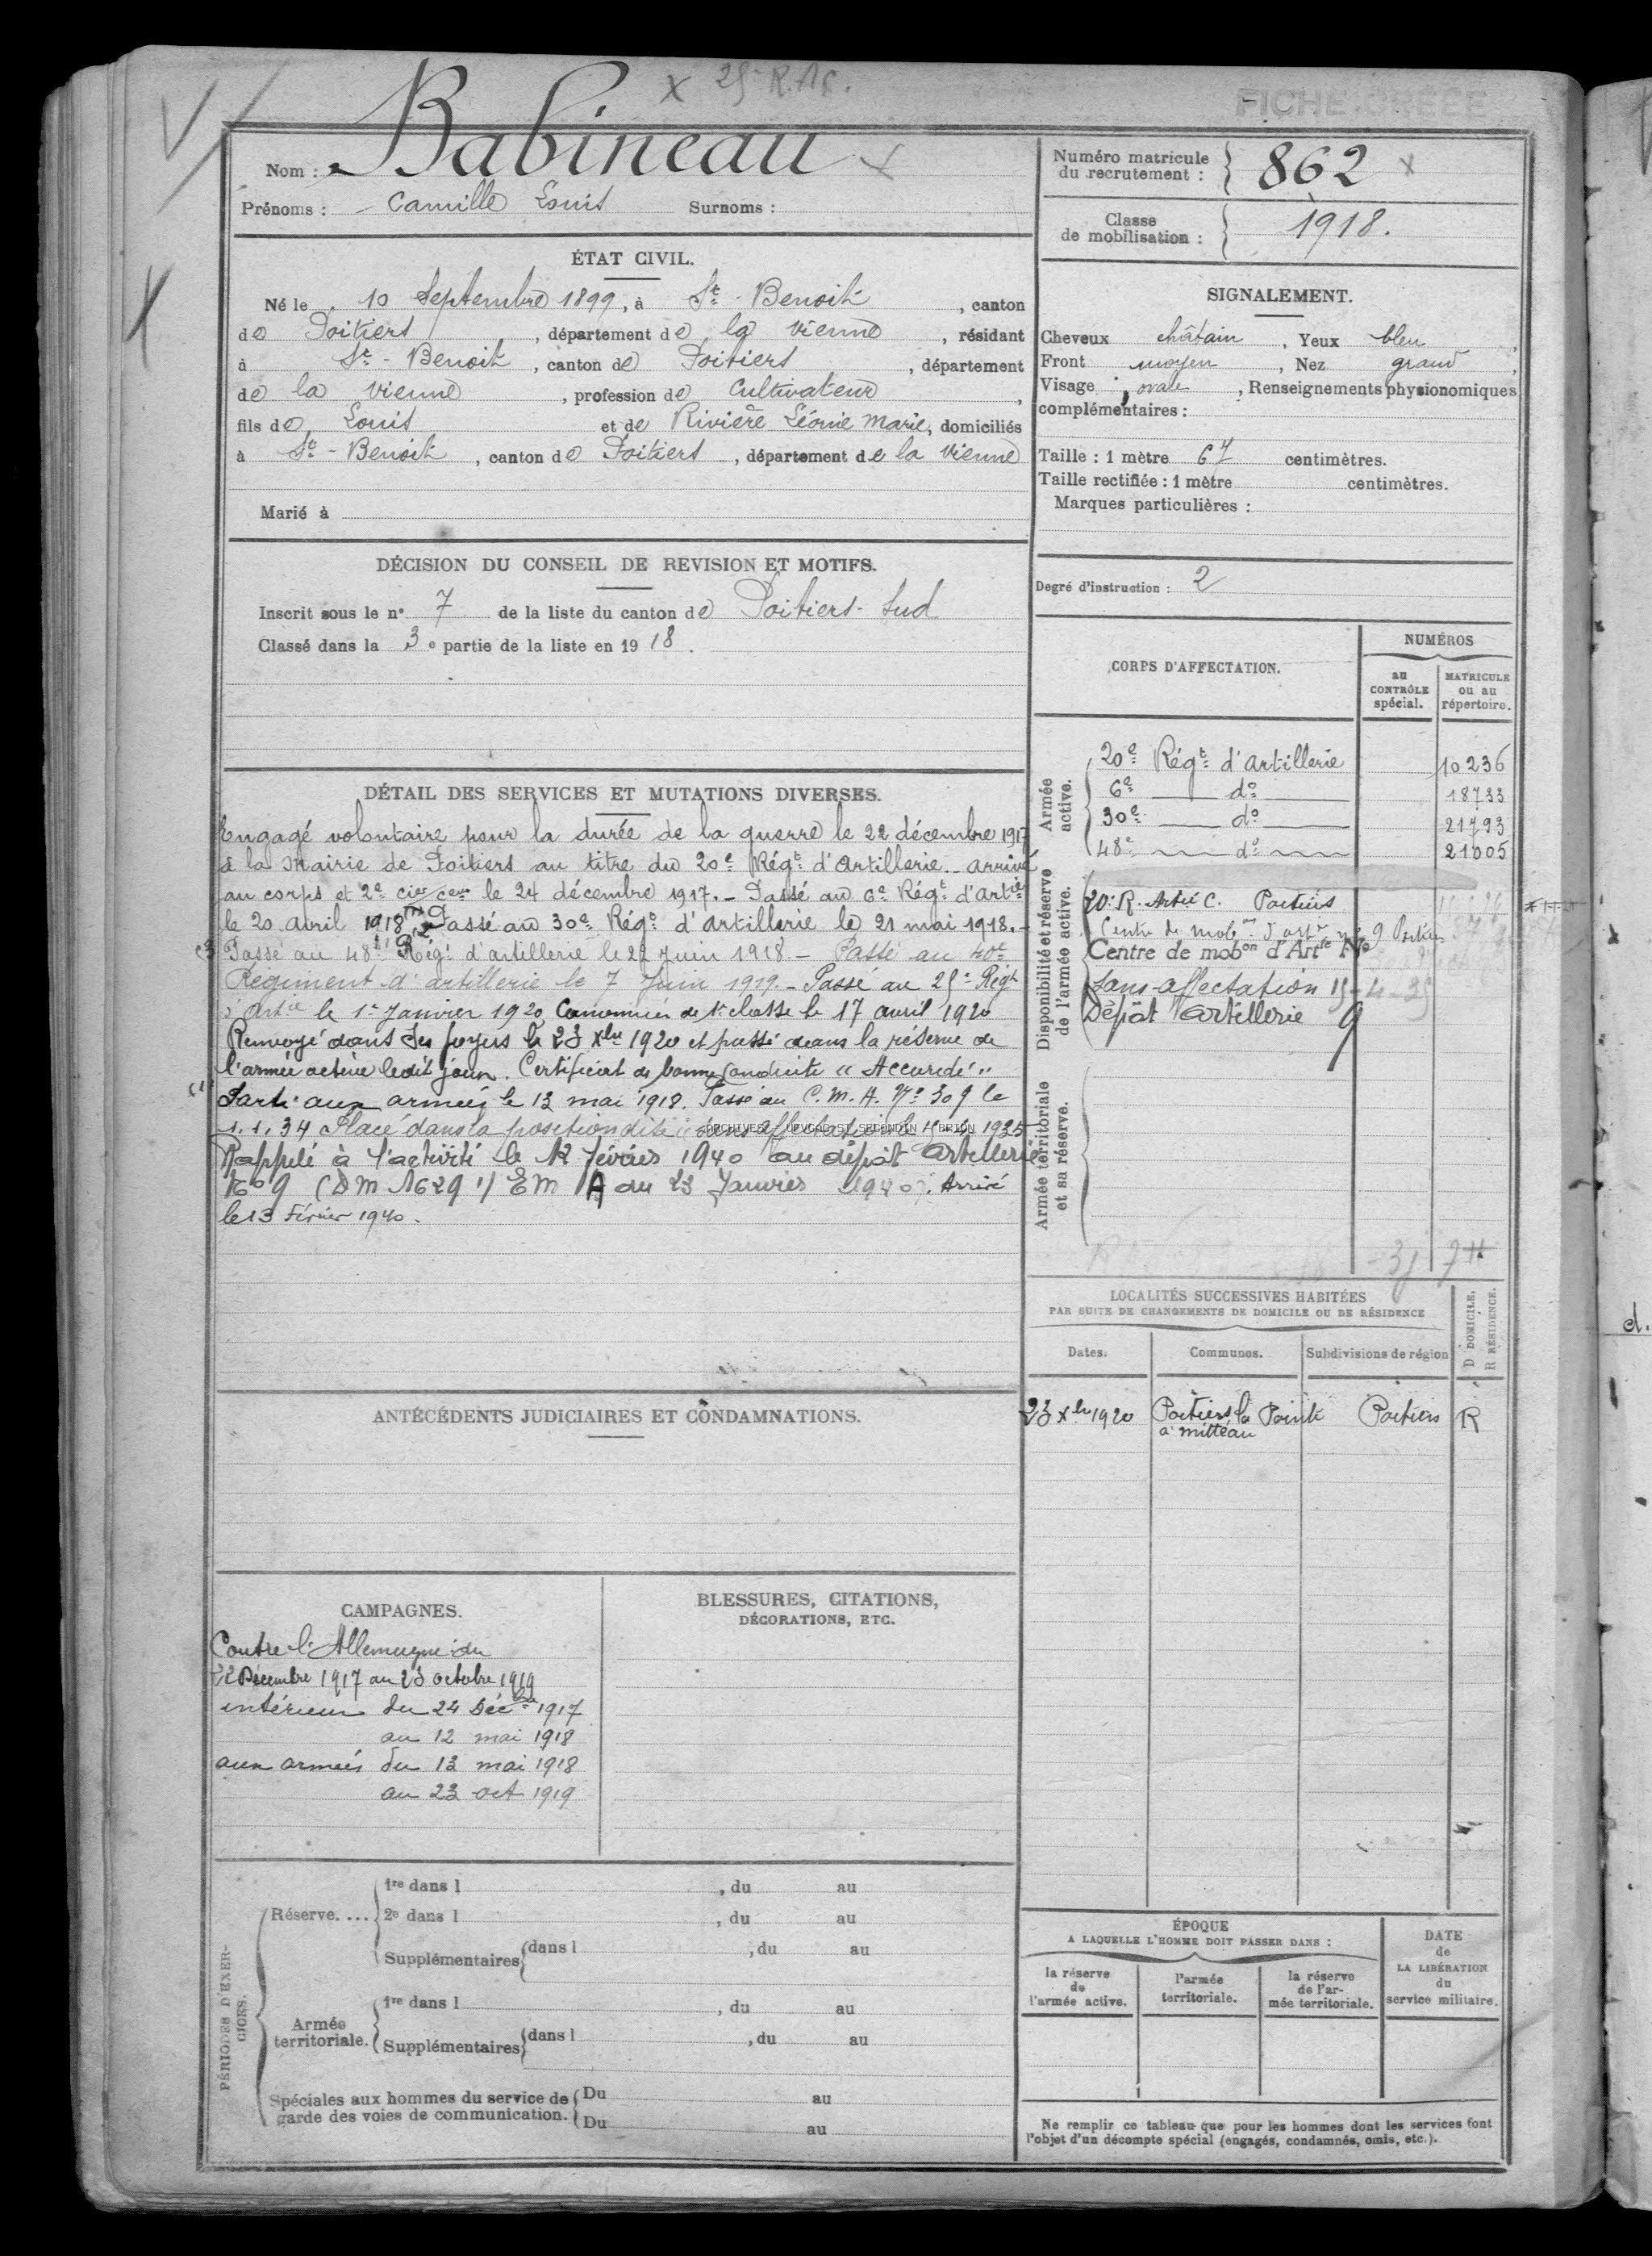 x 25e R.A.C.
FICHE CRÉÉE
Nom : Babineau x
Prénoms : Camille Louis Surnoms :
Numéro matricule du recrutement : 862 x
Classe de mobilisation : 1918.
ÉTAT CIVIL.
Né le 10 Septembre 1899, à St - Benoit, canton
de Poitiers, département de la Vienne, résidant
à St - Benoit, canton de Poitiers, département
de la Vienne, profession de Cultivateur,
fils de Louis et de Rivière Léonie Marie, domiciliés
à St - Benoit, canton de Poitiers, département de la Vienne
Marié à
SIGNALEMENT.
Cheveux châtain, Yeux bleu,
Front moyen, Nez grand,
Visage ovale, Renseignements physionomiques
complémentaires :
Taille : 1 mètre 67 centimètres.
Taille rectifiée : 1 mètre centimètres.
Marques particulières :
Degré d'instruction : 2
DÉCISION DU CONSEIL DE REVISION ET MOTIFS.
Inscrit sous le n° 7 de la liste du canton de Poitiers-Sud
Classé dans la 3e partie de la liste en 1918.
DÉTAIL DES SERVICES ET MUTATIONS DIVERSES.
Engagé volontaire pour la durée de la guerre le 22 décembre 1917
à la Mairie de Poitiers au titre du 20e Régt d'Artillerie. - arrivé
au corps et 2e cier cer le 24 décembre 1917. - Passé au 6e Régt d'Artie
le 20 avril 1918 Passé au 30e Régt d'Artillerie le 21 mai 1918. -
Passé au 48e Régt d'artillerie le 22 Juin 1918 - Passé au 40e
Régiment d'artillerie le 7 Juin 1919. - Passé au 25e Régt
d'Artie le 1er Janvier 1920 Canonnier de 1e classe le 17 avril 1920
Renvoyé dans ses foyers le 23 Xbre 1920 et passé dans la réserve de
l'armée active ledit jour. Certificat de bonne conduite "Accordé"
(1) Parti aux armées le 13 mai 1918. Passé au C.M.A. N° 309 le
1.1.34 Placé dans la position dite "sans affectation" 1935
ARCHIVES
Rappelé à l'activité le 12 février 1940 au dépôt Artillerie
N° 9 (DM 1629 1/EMA du 23 Janvier 1940). Arrivé
le 13 Février 1940.
CORPS D'AFFECTATION.
NUMÉROS
au CONTRÔLE spécial.
MATRICULE ou au répertoire.
Armée active.
20e Régt d'Artillerie 10236
6e do 18733
30e do 21793
48e do 21005
Disponibilité et réserve de l'armée active.
20e R. Artie C. Poitiers
Centre de mobon d'artie n° 9 Poitiers
Centre de mobon d'Artie N°
Sans affectation 15-4-35
Dépôt Artillerie 9
Armée territoriale et sa réserve.
LOCALITÉS SUCCESSIVES HABITÉES
PAR SUITE DE CHANGEMENTS DE DOMICILE OU DE RÉSIDENCE
Dates. Communes. Subdivisions de région D DOMICILE. R RÉSIDENCE.
23 Xbre 1920 Poitiers la Pointe Poitiers R
à mitteau
ANTÉCÉDENTS JUDICIAIRES ET CONDAMNATIONS.
CAMPAGNES.
Contre l'Allemagne du
22 Décembre 1917 au 23 octobre 1919
intérieur du 24 Décbre 1917
au 12 mai 1918
aux armées du 13 mai 1918
au 23 oct 1919
BLESSURES, CITATIONS,
DÉCORATIONS, ETC.
PÉRIODES D'EXERCICES.
Réserve.... 1re dans l , du au
2e dans l , du au
Supplémentaires dans l , du au
Armée territoriale. 1re dans l , du au
Supplémentaires dans l , du au
Spéciales aux hommes du service de garde des voies de communication. Du au
Du au
ÉPOQUE
A LAQUELLE L'HOMME DOIT PASSER DANS :
la réserve de l'armée active.
l'armée territoriale.
la réserve de l'armée territoriale.
DATE de LA LIBÉRATION du service militaire.
Ne remplir ce tableau que pour les hommes dont les services font
l'objet d'un décompte spécial (engagés, condamnés, omis, etc.).